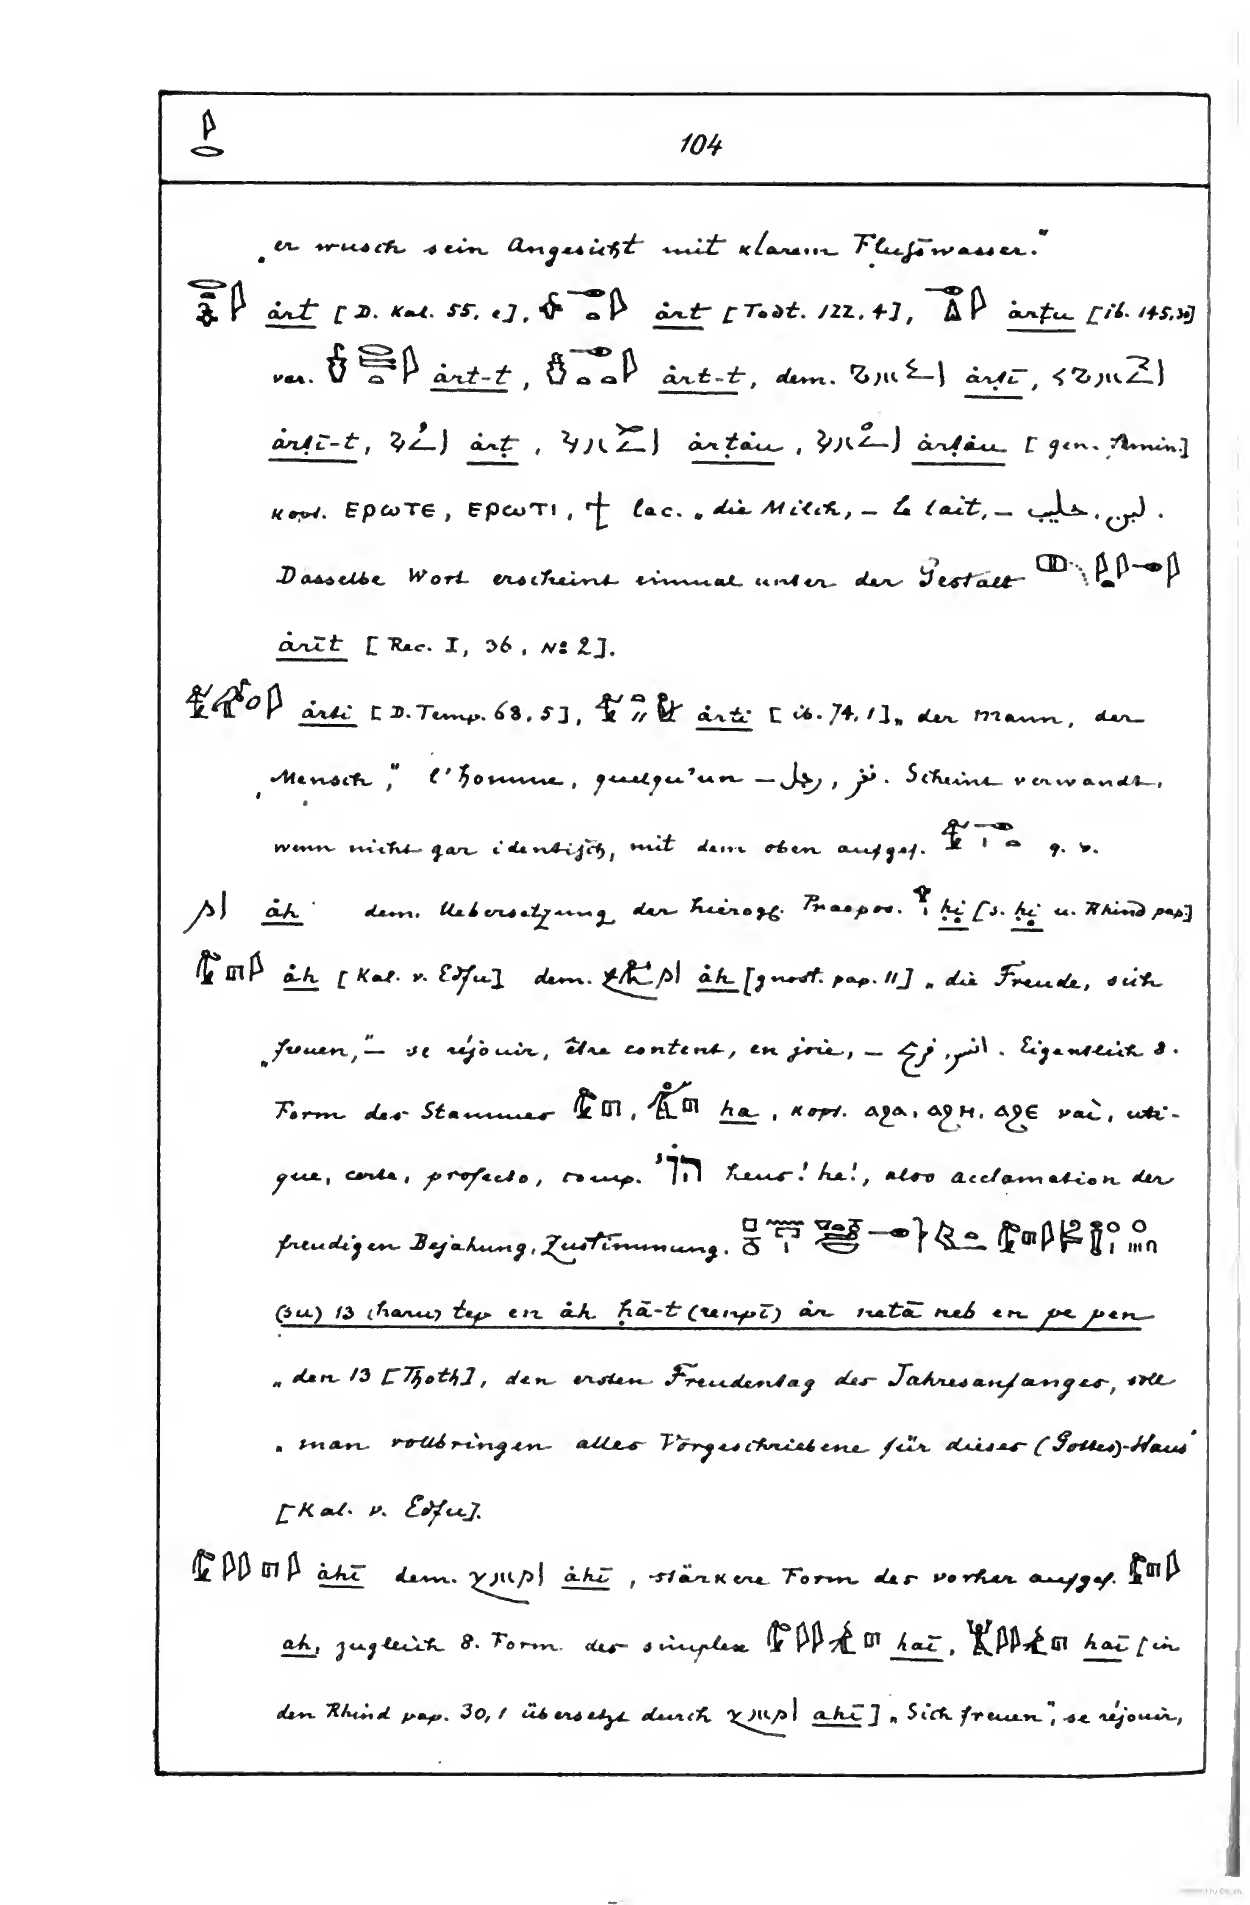 104
„er wusch sein Angesicht mit klarem Flußwasser."
ȧrt [D. Kal. 55, c], ȧrt [Todt. 122, 4], ȧrṭu [ib. 145, 30]
var. ȧrt-t, ȧrt-t, dem. ȧrṭī,
ȧrṭī-t, ȧrṭ, ȧrṭȧu, ȧrṭȧu [gen. Amin.]
kopt. ⲉⲣⲱⲧⲉ, ⲉⲣⲱⲧⲓ, ϯ lac. „die Milch, – le lait, – لبن, حليب.
Dasselbe Wort erscheint einmal unter der Gestalt
ȧrīt [Rec. I, 36, No 2].
ȧrti [D. Temp. 68, 5], ȧrti [ib. 74, 1] „der Mann, der
„Mensch," l'homme, quelqu'un – رجل, نفر. Scheint verwandt,
wenn nicht gar identisch, mit dem oben aufgef. q. v.
ȧh dem. Uebersetzung der hierogl. Praepos. ḥi [s. ḥi u. Rhind pap.]
ȧh [Kal. v. Edfu] dem. ȧh [gnost. pap. 11] „die Freude, sich
„freuen," – se réjouir, être content, en joie, – فرح. Eigentlich 8.
Form des Stammes ha, kopt. ⲁϩⲁ, ⲁϩⲏ, ⲁϩⲉ vaì, uti-
que, certe, profecto, comp. heus! he!, also acclamation der
freudigen Bejahung, Zustimmung.
(su) 13 (haru) tep en ȧh ḥā-t (renpī) ȧr netā neb en pe pen
„den 13 [Thoth], den ersten Freudentag des Jahresanfanges, soll
„man vollbringen alles Vorgeschriebene für dieses (Gottes)-Haus"
[Kal. v. Edfu].
ȧhī dem. ȧhī, stärkere Form des vorher aufgef.
ah, zugleich 8. Form des simplex haī, haī [in
den Rhind pap. 30, 1 übersetzt durch ahī] „Sich freuen", se réjouir,